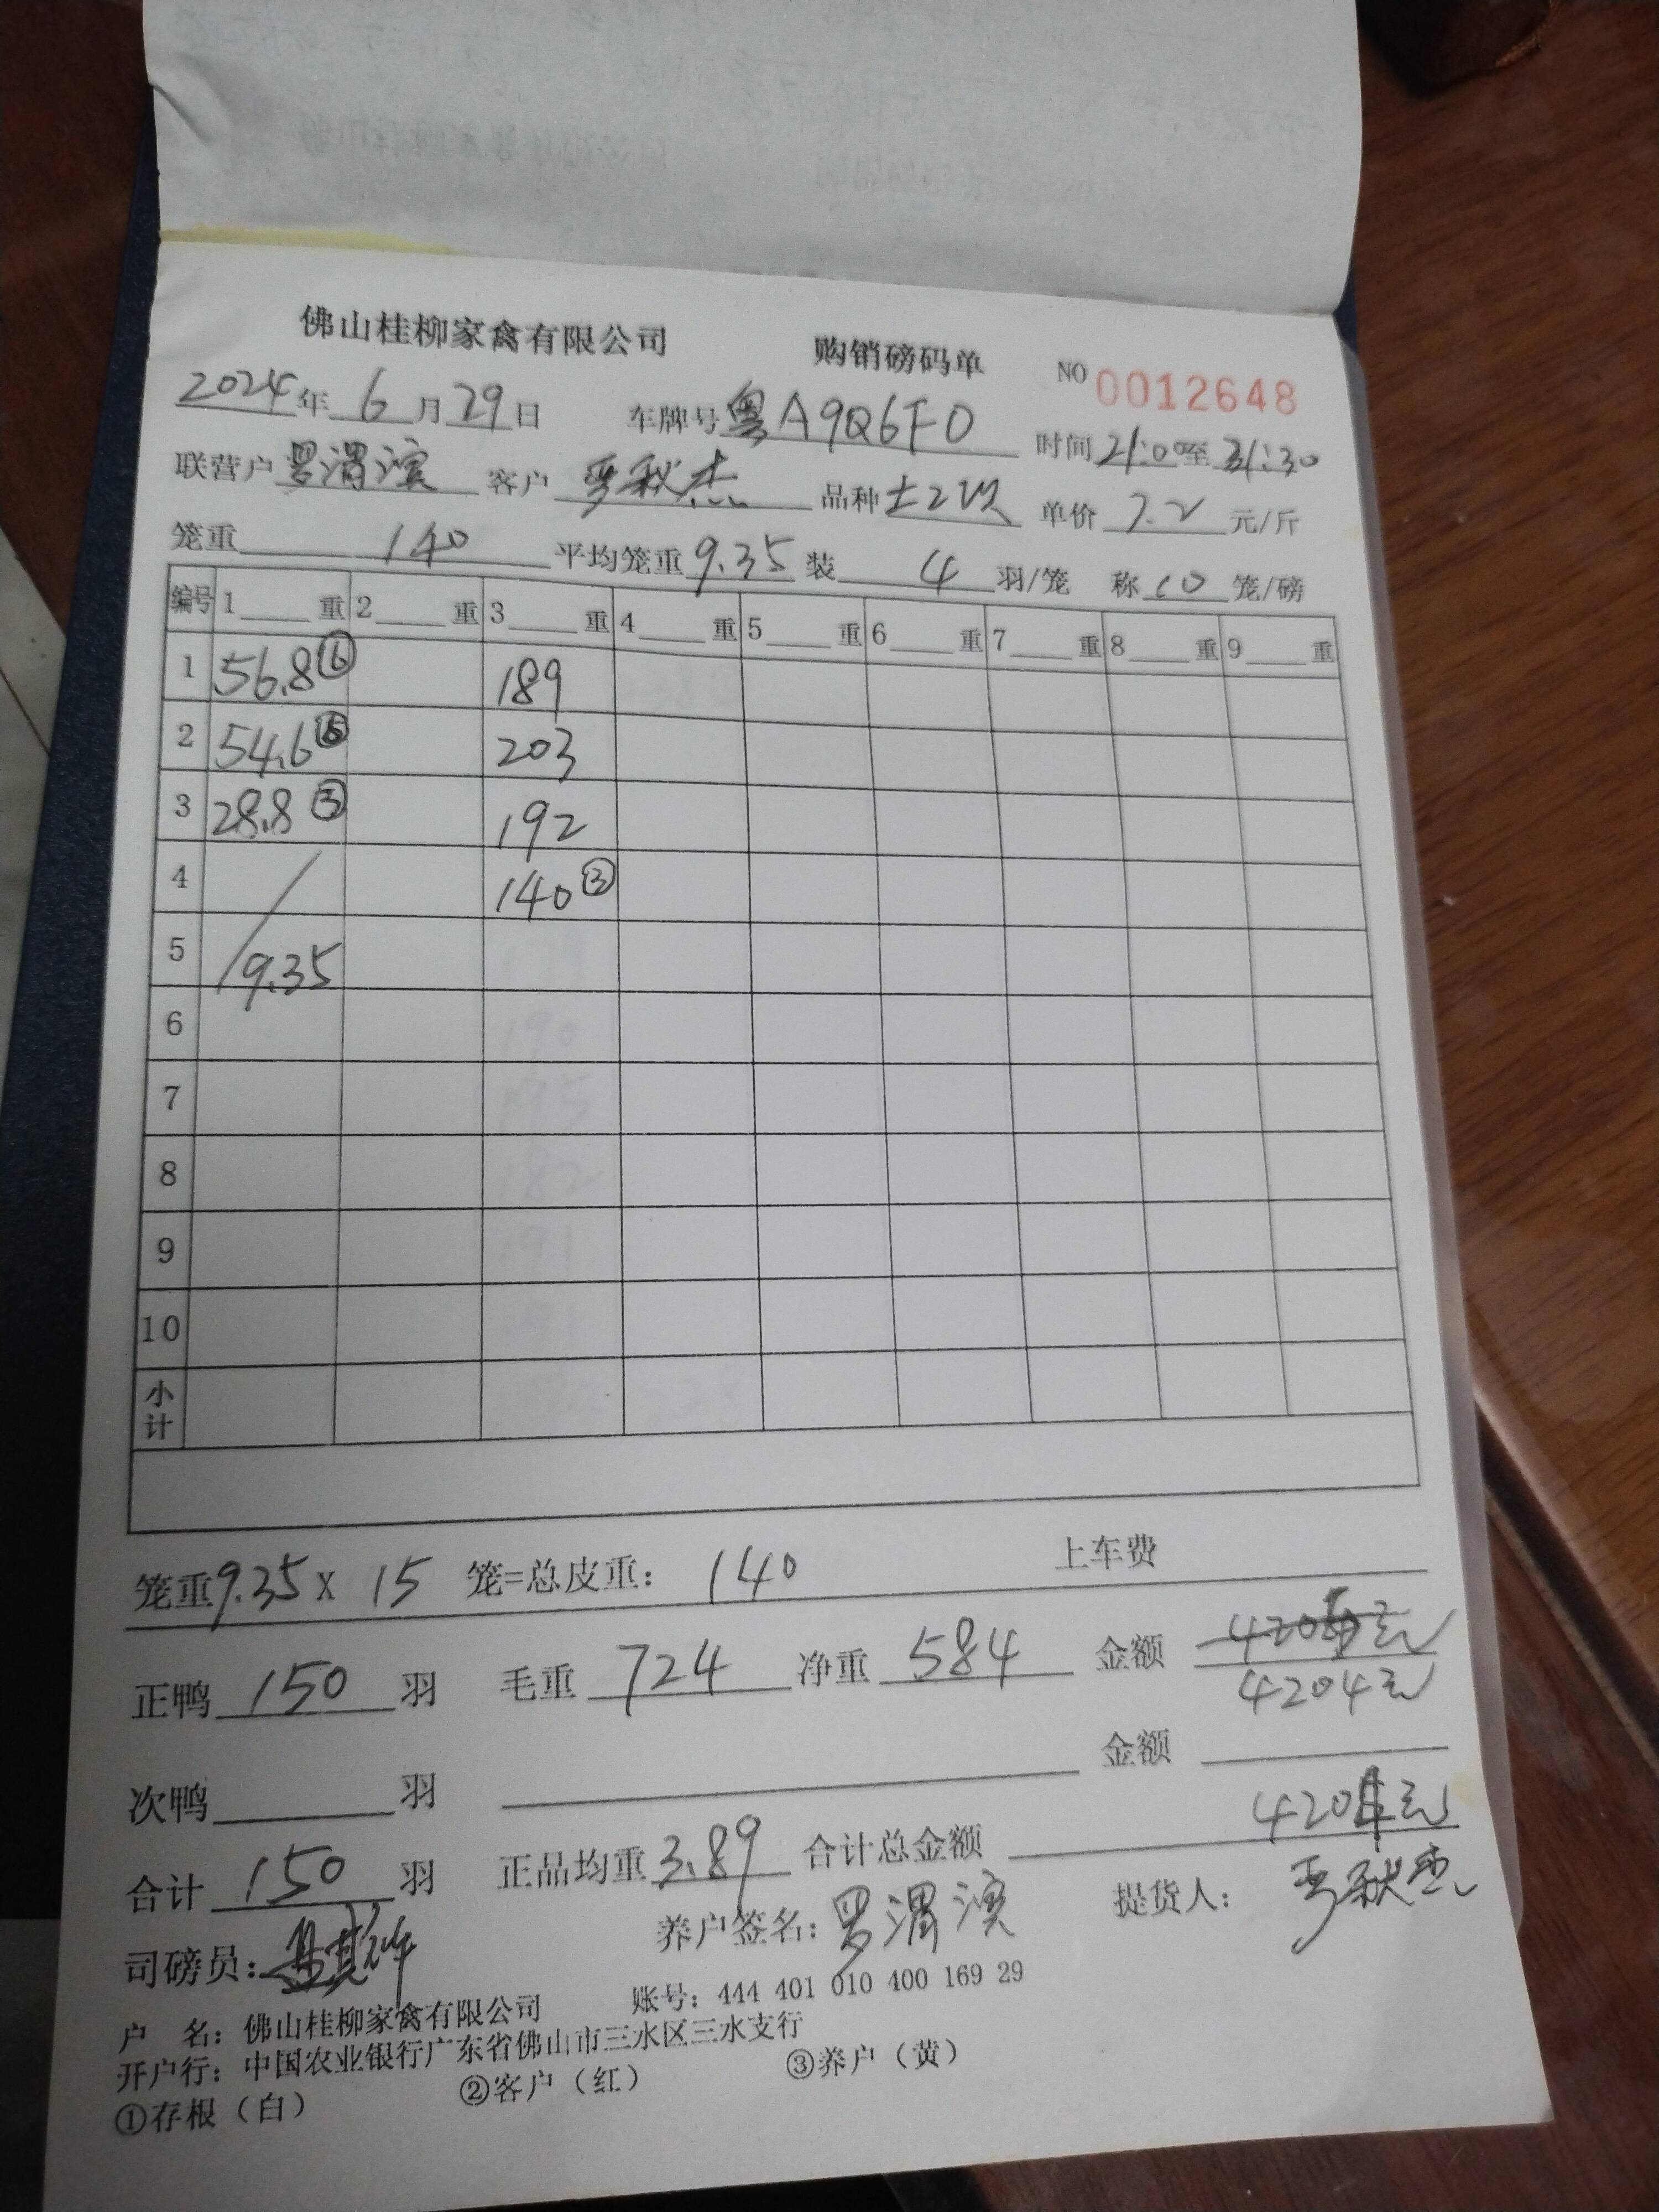 佛山桂柳家禽有限公司 购销磅码单 NO 0012648
2024年 6 月 29 日 车牌号 粤A9Q6F0 时间 21:00 至 21:30
联营户 罗渭滨 客户 严秋杰 品种 土2次 单价 7.2 元/斤
笼重 140 平均笼重 9.35 装 4 羽/笼 称 10 笼/磅
编号 1 重 2 重 3 重 4 重 5 重 6 重 7 重 8 重 9 重
1 56.8⑥ 189
2 54.6 203
3 28.8③ 192
4 140③
5 9.35
6
7
8
9
10
小计
笼重9.35 X 15 笼=总皮重： 140 上车费
正鸭 150 羽 毛重 724 净重 584 金额
4204元
次鸭 羽 金额
合计 150 羽 正品均重 3.89 合计总金额 4204元
司磅员： 养户签名：罗渭滨 提货人：严秋杰
户 名：佛山桂柳家禽有限公司 账号：444 401 010 400 169 29
开户行：中国农业银行广东省佛山市三水区三水支行
①存根（白） ②客户（红） ③养户（黄）